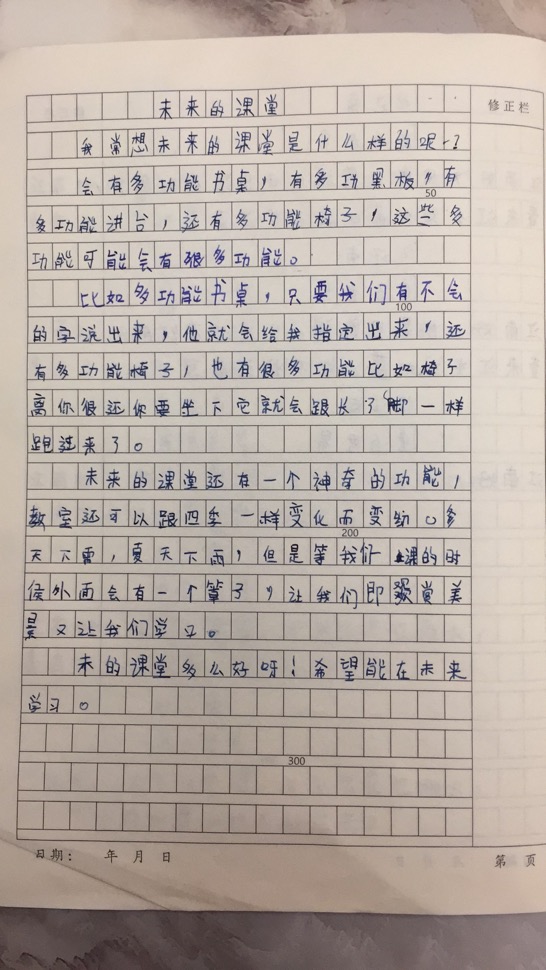 未来的课堂
修正栏
我常想未来的课堂是什么样的呢?
会有多功能书桌,有多功黑板,有
50
多功能进台,还有多功能椅子,这些多
功能可能会有很多功能。
比如多功能书桌,只要我们有不会
100
的字说出来,他就会给我指定出来,还
有多功能椅子,也有很多功能比如椅子
离你很还你要坐下它就会跟长了脚一样
跑过来了。
未来的课堂还有一个神奇的功能,
教室还可以跟四季一样变化而变动。冬
200
天下雪,夏天下雨,但是等我们上课的时
侯外面会有一个罩子,让我们即欣赏美
景又让我们学习。
未的课堂多么好呀!希望能在未来
学习。
300
日期: 年 月 日 第 页